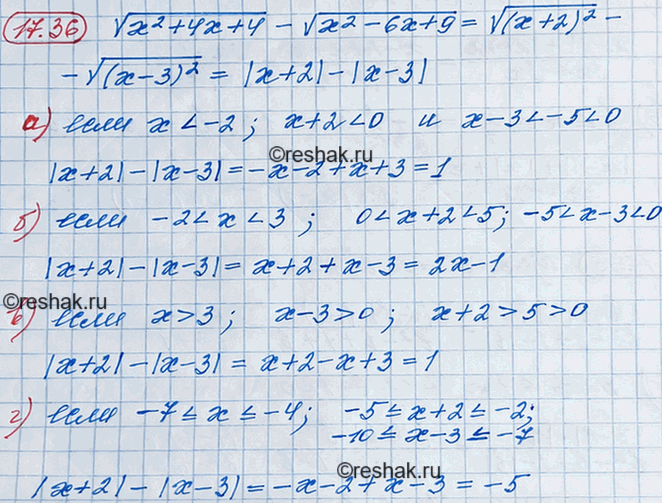 17.36 √x²+4x+4 - √x²-6x+9 = √(x+2)² -
- √(x-3)² = |x+2| - |x-3|
а) если x < -2; x+2<0 и x-3<-5<0
©reshak.ru
|x+2| - |x-3| = -x-2+x+3 = 1
б) если -2<x<3; 0<x+2<5; -5<x-3<0
|x+2| - |x-3| = x+2+x-3 = 2x-1
©reshak.ru
в) если x>3; x-3>0; x+2>5>0
|x+2| - |x-3| = x+2-x+3 = 1
г) если -7≤x≤-4; -5≤x+2≤-2;
-10≤x-3≤-7
©reshak.ru
|x+2| - |x-3| = -x-2+x-3 = -5